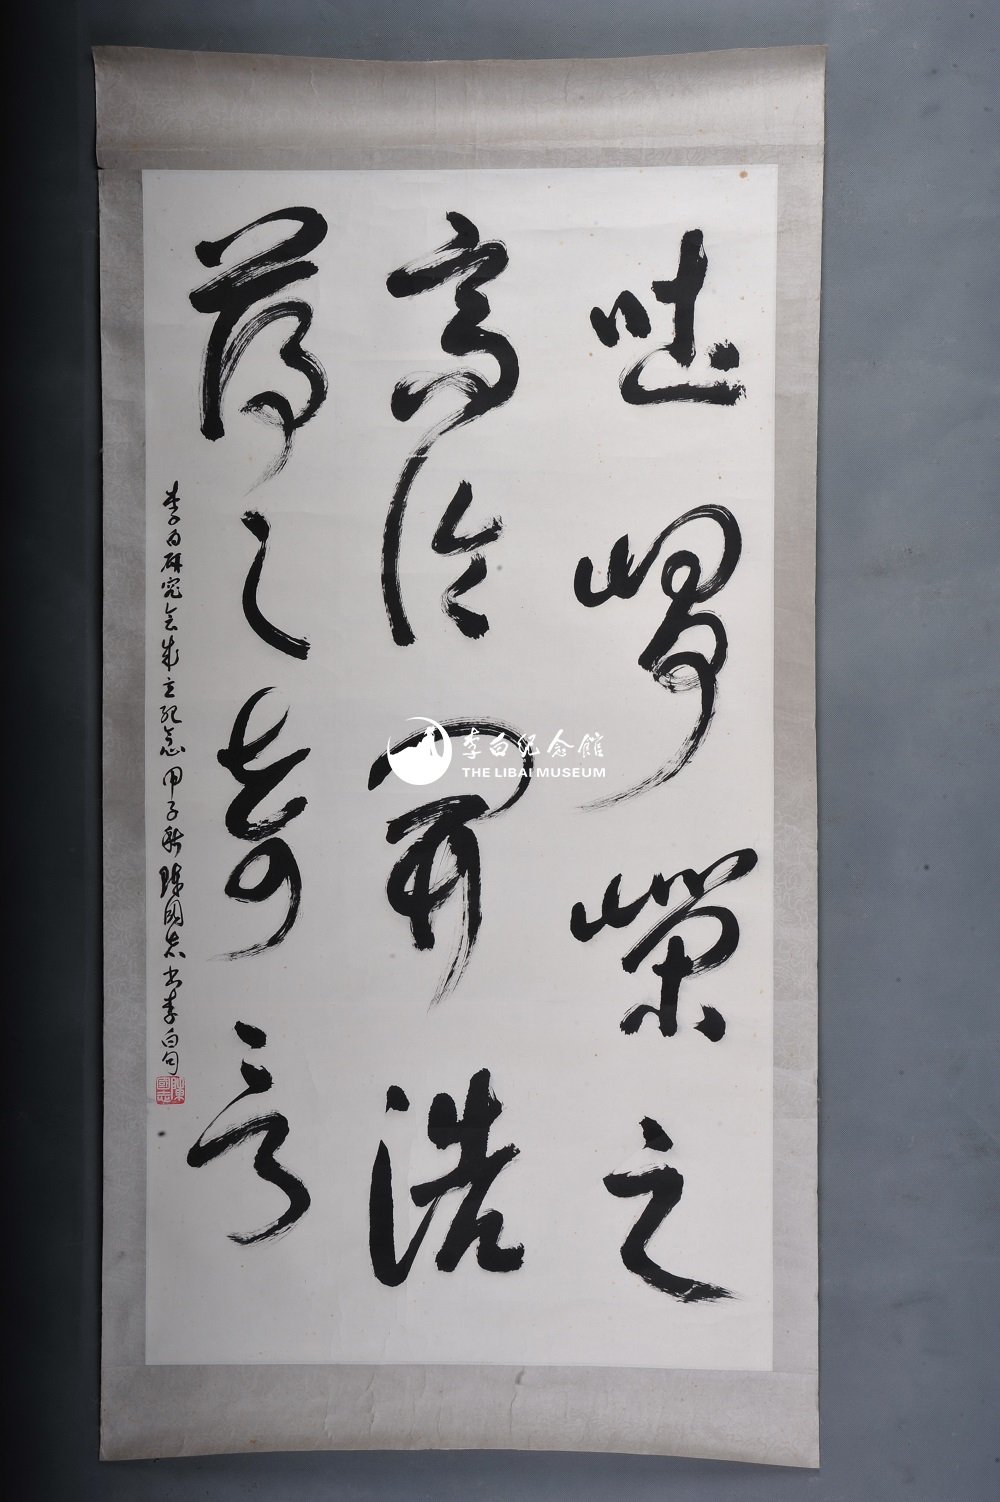 吐峥嵘之
高论開浩
荡之奇言
李白研究会成立纪念 甲子秋 陈国志书李白句
陳國志
李白纪念馆
THE LIBAI MUSEUM